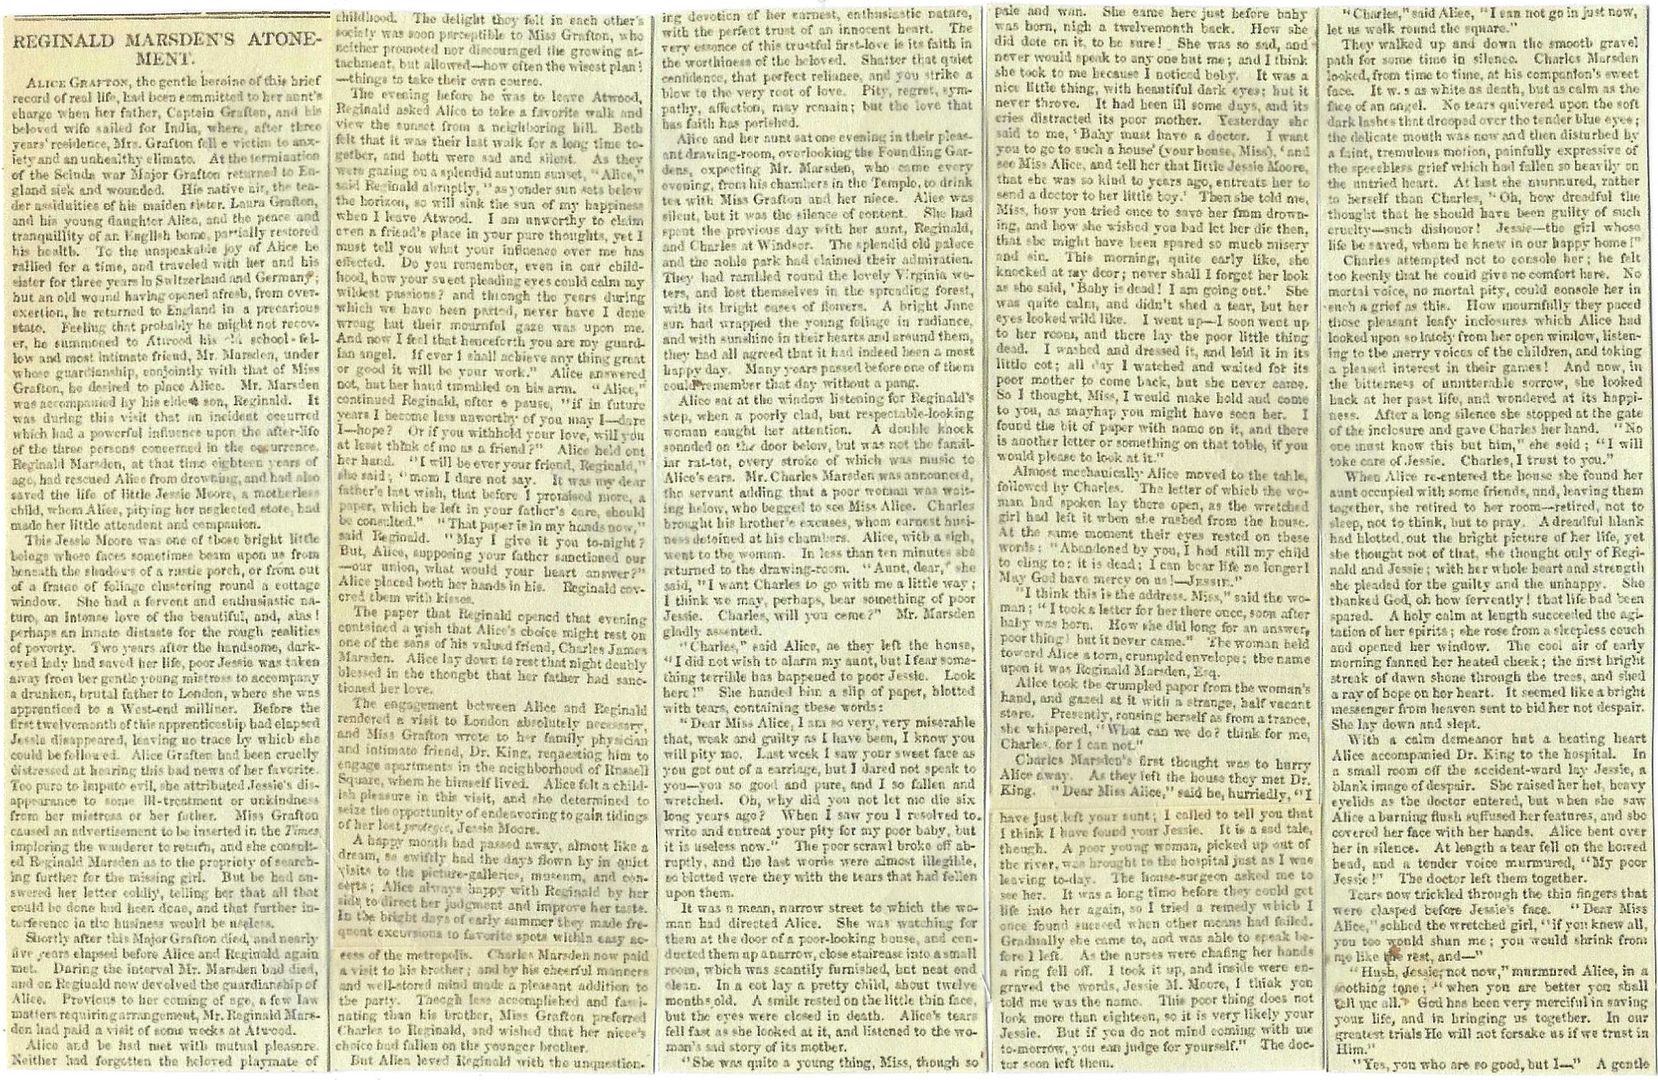 REGINALD MARSDEN'S ATONE-
MENT.
ALICE GRAFTON, the gentle heroine of this brief
record of real life, had been committed to her aunt's
charge when her father, Captain Grafton, and his
beloved wife sailed for India, where, after three
years' residence, Mrs. Grafton fell a victim to anx-
iety and an unhealthy climate. At the termination
of the Scinde war Major Grafton returned to En-
gland sick and wounded. His native air, the ten-
der assiduities of his maiden sister, Laura Grafton,
and his young daughter Alice, and the peace and
tranquillity of an English home, partially restored
his health. To the unspeakable joy of Alice he
rallied for a time, and traveled with her and his
sister for three years in Switzerland and Germany;
but an old wound having opened afresh, from over-
exertion, he returned to England in a precarious
state. Feeling that probably he might not recov-
er, he summoned to Atwood his old school-fel-
low and most intimate friend, Mr. Marsden, under
whose guardianship, conjointly with that of Miss
Grafton, he desired to place Alice. Mr. Marsden
was accompanied by his eldest son, Reginald. It
was during this visit that an incident occurred
which had a powerful influence upon the after-life
of the three persons concerned in the occurrence.
Reginald Marsden, at that time eighteen years of
age, had rescued Alice from drowning, and had also
saved the life of little Jessie Moore, a motherless
child, whom Alice, pitying her neglected state, had
made her little attendant and companion.
This Jessie Moore was one of those bright little
beings whose faces sometimes beam upon us from
beneath the shadows of a rustic porch, or from out
of a frame of foliage clustering round a cottage
window. She had a fervent and enthusiastic na-
ture, an intense love of the beautiful, and, alas!
perhaps an innate distaste for the rough realities
of poverty. Two years after the handsome, dark-
eyed lady had saved her life, poor Jessie was taken
away from her gentle young mistress to accompany
a drunken, brutal father to London, where she was
apprenticed to a West-end milliner. Before the
first twelvemonth of this apprenticeship had elapsed
Jessie disappeared, leaving no trace by which she
could be followed. Alice Grafton had been cruelly
distressed at hearing this bad news of her favorite.
Too pure to impute evil, she attributed Jessie's dis-
appearance to some ill-treatment or unkindness
from her mistress or her father. Miss Grafton
caused an advertisement to be inserted in the Times,
imploring the wanderer to return, and she consult-
ed Reginald Marsden as to the propriety of search-
ing further for the missing girl. But he had an-
swered her letter coldly, telling her that all that
could be done had been done, and that further in-
terference in the business would be useless.
Shortly after this Major Grafton died, and nearly
five years elapsed before Alice and Reginald again
met. During the interval Mr. Marsden had died,
and on Reginald now devolved the guardianship of
Alice. Previous to her coming of age, a few law
matters requiring arrangement, Mr. Reginald Mars-
den had paid a visit of some weeks at Atwood.
Alice and he had met with mutual pleasure.
Neither had forgotten the beloved playmate of
childhood. The delight they felt in each other's
society was soon perceptible to Miss Grafton, who
neither promoted nor discouraged the growing at-
tachment, but allowed—how often the wisest plan!
—things to take their own course.
The evening before he was to leave Atwood,
Reginald asked Alice to take a favorite walk and
view the sunset from a neighboring hill. Both
felt that it was their last walk for a long time to-
gether, and both were sad and silent. As they
were gazing on a splendid autumn sunset, "Alice,"
said Reginald abruptly, "as yonder sun sets below
the horizon, so will sink the sun of my happiness
when I leave Atwood. I am unworthy to claim
even a friend's place in your pure thoughts, yet I
must tell you what your influence over me has
effected. Do you remember, even in our child-
hood, how your sweet pleading eyes could calm my
wildest passions? and through the years during
which we have been parted, never have I done
wrong but their mournful gaze was upon me.
And now I feel that henceforth you are my guard-
ian angel. If ever I shall achieve any thing great
or good it will be your work." Alice answered
not, but her hand trembled on his arm. "Alice,"
continued Reginald, after a pause, "if in future
years I become less unworthy of you may I—dare
I—hope? Or if you withhold your love, will you
at least think of me as a friend?" Alice held out
her hand. "I will be ever your friend, Reginald,"
she said; "more I dare not say. It was my dear
father's last wish, that before I promised more, a
paper, which he left in your father's care, should
be consulted." "That paper is in my hands now,"
said Reginald. "May I give it you to-night?
But, Alice, supposing your father sanctioned our
—our union, what would your heart answer?"
Alice placed both her hands in his. Reginald cov-
ered them with kisses.
The paper that Reginald opened that evening
contained a wish that Alice's choice might rest on
one of the sons of his valued friend, Charles James
Marsden. Alice lay down to rest that night doubly
blessed in the thought that her father had sanc-
tioned her love.
The engagement between Alice and Reginald
rendered a visit to London absolutely necessary,
and Miss Grafton wrote to her family physician
and intimate friend, Dr. King, requesting him to
engage apartments in the neighborhood of Russell
Square, where he himself lived. Alice felt a child-
ish pleasure in this visit, and she determined to
seize the opportunity of endeavoring to gain tidings
of her lost protegée, Jessie Moore.
A happy month had passed away, almost like a
dream, so swiftly had the days flown by in quiet
visits to the picture-galleries, museum, and con-
certs; Alice always happy with Reginald by her
side, to direct her judgment and improve her taste.
In the bright days of early summer they made fre-
quent excursions to favorite spots within easy ac-
cess of the metropolis. Charles Marsden now paid
a visit to his brother; and by his cheerful manners
and well-stored mind made a pleasant addition to
the party. Though less accomplished and fasci-
nating than his brother, Miss Grafton preferred
Charles to Reginald, and wished that her niece's
choice had fallen on the younger brother.
But Alice loved Reginald with the unquestion-
ing devotion of her earnest, enthusiastic nature,
with the perfect trust of an innocent heart. The
very essence of this trustful first-love is its faith in
the worthiness of the beloved. Shatter that quiet
confidence, that perfect reliance, and you strike a
blow to the very root of love. Pity, regret, sym-
pathy, affection, may remain; but the love that
has faith has perished.
Alice and her aunt sat one evening in their pleas-
ant drawing-room, overlooking the Foundling Gar-
dens, expecting Mr. Marsden, who came every
evening, from his chambers in the Temple, to drink
tea with Miss Grafton and her niece. Alice was
silent, but it was the silence of content. She had
spent the previous day with her aunt, Reginald,
and Charles at Windsor. The splendid old palace
and the noble park had claimed their admiration.
They had rambled round the lovely Virginia wa-
ters, and lost themselves in the spreading forest,
with its bright oases of flowers. A bright June
sun had wrapped the young foliage in radiance,
and with sunshine in their hearts and around them,
they had all agreed that it had indeed been a most
happy day. Many years passed before one of them
could remember that day without a pang.
Alice sat at the window listening for Reginald's
step, when a poorly clad, but respectable-looking
woman caught her attention. A double knock
sounded on the door below, but was not the famil-
iar rat-tat, every stroke of which was music to
Alice's ears. Mr. Charles Marsden was announced,
the servant adding that a poor woman was wait-
ing below, who begged to see Miss Alice. Charles
brought his brother's excuses, whom earnest busi-
ness detained at his chambers. Alice, with a sigh,
went to the woman. In less than ten minutes she
returned to the drawing-room. "Aunt, dear," she
said, "I want Charles to go with me a little way;
I think we may, perhaps, hear something of poor
Jessie. Charles, will you come?" Mr. Marsden
gladly assented.
"Charles," said Alice, as they left the house,
"I did not wish to alarm my aunt, but I fear some-
thing terrible has happened to poor Jessie. Look
here!" She handed him a slip of paper, blotted
with tears, containing these words:
"Dear Miss Alice, I am so very, very miserable
that, weak and guilty as I have been, I know you
will pity me. Last week I saw your sweet face as
you got out of a carriage, but I dared not speak to
you—you so good and pure, and I so fallen and
wretched. Oh, why did you not let me die six
long years ago? When I saw you I resolved to
write and entreat your pity for my poor baby, but
it is useless now." The poor scrawl broke off ab-
ruptly, and the last words were almost illegible,
so blotted were they with the tears that had fallen
upon them.
It was a mean, narrow street to which the wo-
man had directed Alice. She was watching for
them at the door of a poor-looking house, and con-
ducted them up a narrow, close staircase into a small
room, which was scantily furnished, but neat and
clean. In a cot lay a pretty child, about twelve
months old. A smile rested on the little thin face,
but the eyes were closed in death. Alice's tears
fell fast as she looked at it, and listened to the wo-
man's sad story of its mother.
"She was quite a young thing, Miss, though so
pale and wan. She came here just before baby
was born, nigh a twelvemonth back. How she
did dote on it, to be sure! She was so sad, and
never would speak to any one but me; and I think
she took to me because I noticed baby. It was a
nice little thing, with beautiful dark eyes; but it
never throve. It had been ill some days, and its
cries distracted its poor mother. Yesterday she
said to me, 'Baby must have a doctor. I want
you to go to such a house' (your house, Miss), 'and
see Miss Alice, and tell her that little Jessie Moore,
that she was so kind to years ago, entreats her to
send a doctor to her little boy.' Then she told me,
Miss, how you tried once to save her from drown-
ing, and how she wished you had let her die then,
that she might have been spared so much misery
and sin. This morning, quite early like, she
knocked at my door; never shall I forget her look
as she said, 'Baby is dead! I am going out.' She
was quite calm, and didn't shed a tear, but her
eyes looked wild like. I went up—I soon went up
to her room, and there lay the poor little thing
dead. I washed and dressed it, and laid it in its
little cot; all day I watched and waited for its
poor mother to come back, but she never came.
So I thought, Miss, I would make bold and come
to you, as mayhap you might have seen her. I
found the bit of paper with name on it, and there
is another letter or something on that table, if you
would please to look at it."
Almost mechanically Alice moved to the table,
followed by Charles. The letter of which the wo-
man had spoken lay there open, as the wretched
girl had left it when she rushed from the house.
At the same moment their eyes rested on these
words: "Abandoned by you, I had still my child
to cling to: it is dead; I can bear life no longer!
May God have mercy on us!—JESSIE."
"I think this is the address, Miss," said the wo-
man; "I took a letter for her there once, soon after
baby was born. How she did long for an answer,
poor thing! but it never came." The woman held
toward Alice a torn, crumpled envelope; the name
upon it was Reginald Marsden, Esq.
Alice took the crumpled paper from the woman's
hand, and gazed at it with a strange, half vacant
stare. Presently, rousing herself as from a trance,
she whispered, "What can we do? think for me,
Charles, for I can not."
Charles Marsden's first thought was to hurry
Alice away. As they left the house they met Dr.
King. "Dear Miss Alice," said he, hurriedly, "I
have just left your aunt; I called to tell you that
I think I have found your Jessie. It is a sad tale,
though. A poor young woman, picked up out of
the river, was brought to the hospital just as I was
leaving to-day. The house-surgeon asked me to
see her. It was a long time before they could get
life into her again, so I tried a remedy which I
once found succeed when other means had failed.
Gradually she came to, and was able to speak be-
fore I left. As the nurses were chafing her hands
a ring fell off. I took it up, and inside were en-
graved the words, Jessie M. Moore, I think you
told me was the name. This poor thing does not
look more than eighteen, so it is very likely your
Jessie. But if you do not mind coming with me
to-morrow, you can judge for yourself." The doc-
tor soon left them.
"Charles," said Alice, "I can not go in just now,
let us walk round the square."
They walked up and down the smooth gravel
path for some time in silence. Charles Marsden
looked, from time to time, at his companion's sweet
face. It was as white as death, but as calm as the
face of an angel. No tears quivered upon the soft
dark lashes that drooped over the tender blue eyes;
the delicate mouth was now and then disturbed by
a faint, tremulous motion, painfully expressive of
the speechless grief which had fallen so heavily on
the untried heart. At last she murmured, rather
to herself than Charles, "Oh, how dreadful the
thought that he should have been guilty of such
cruelty—such dishonor! Jessie—the girl whose
life he saved, whom he knew in our happy home!"
Charles attempted not to console her; he felt
too keenly that he could give no comfort here. No
mortal voice, no mortal pity, could console her in
such a grief as this. How mournfully they paced
those pleasant leafy inclosures which Alice had
looked upon so lately from her open window, listen-
ing to the merry voices of the children, and taking
a pleased interest in their games! And now, in
the bitterness of unutterable sorrow, she looked
back at her past life, and wondered at its happi-
ness. After a long silence she stopped at the gate
of the inclosure and gave Charles her hand. "No
one must know this but him," she said; "I will
take care of Jessie. Charles, I trust to you."
When Alice re-entered the house she found her
aunt occupied with some friends, and, leaving them
together, she retired to her room—retired, not to
sleep, not to think, but to pray. A dreadful blank
had blotted out the bright picture of her life, yet
she thought not of that, she thought only of Regi-
nald and Jessie; with her whole heart and strength
she pleaded for the guilty and the unhappy. She
thanked God, oh how fervently! that life had been
spared. A holy calm at length succeeded the agi-
tation of her spirits; she rose from a sleepless couch
and opened her window. The cool air of early
morning fanned her heated cheek; the first bright
streak of dawn shone through the trees, and shed
a ray of hope on her heart. It seemed like a bright
messenger from heaven sent to bid her not despair.
She lay down and slept.
With a calm demeanor but a beating heart
Alice accompanied Dr. King to the hospital. In
a small room off the accident-ward lay Jessie, a
blank image of despair. She raised her hot, heavy
eyelids as the doctor entered, but when she saw
Alice a burning flush suffused her features, and she
covered her face with her hands. Alice bent over
her in silence. At length a tear fell on the bowed
head, and a tender voice murmured, "My poor
Jessie!" The doctor left them together.
Tears now trickled through the thin fingers that
were clasped before Jessie's face. "Dear Miss
Alice," sobbed the wretched girl, "if you knew all,
you too would shun me; you would shrink from
me like the rest, and—"
"Hush, Jessie, not now," murmured Alice, in a
soothing tone; "when you are better you shall
tell me all. God has been very merciful in saving
your life, and in bringing us together. In our
greatest trials He will not forsake us if we trust in
Him."
"Yes, you who are so good, but I—" A gentle